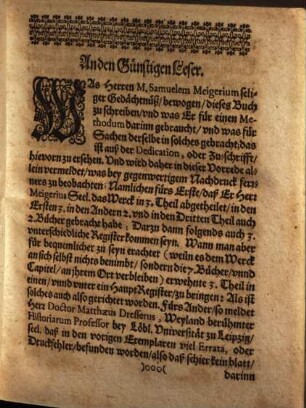 An den Günstigen Leser.
WAs Herren M, Samuelem Meigerium seli-
ger Gedächtnüß/ bewogen/ dieses Buch
zu schreiben/ und was Er für einen Me-
thodum darinn gebraucht/ und was für
Sachen derselbe in solches gebracht; das
ist auß der Dedication, oder Zuschrifft/
hievorn zu ersehen. Und wird daher in dieser Vorrede al-
lein vermeldet/ was bey gegenwertigem Nachdruck fer-
ners zu beobachten: Nämlichen fürs Erste/ daß Er Herr
Meigerius Seel. das Werck in 3. Theil abgetheilet/ in den
Ersten 3. in den Andern 2. und in den Dritten Theil auch
2. Bücher gebracht habe; Darzu dann folgends auch 7.
unterschiedliche Register kommen seyn. Wann man aber
für bequemlicher zu seyn erachtet (weiln es dem Werck
an sich selbst nichts benimbt/ sondern die 7. Bücher/ und
Capitel/ an ihrem Ort verbleiben) erwehnte 3. Theil in
einen/ und unter ein Haupt Register/ zu bringen: Als ist
solches auch also gerichtet worden. Fürs Ander/ so meldet
Herr Doctor Matthæus Dresserus, Weyland berühmter
Historiarum Professor bey Löbl. Universität zu Leipzig/
seel. daß in den vorigen Exemplaren viel Errata, oder
Druckfehler/ befunden worden/ also daß schier kein blatt/
)000( darinn